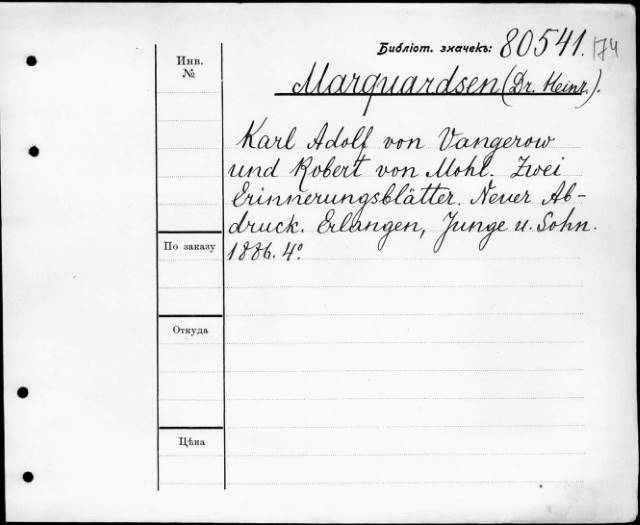 Библіот. значекъ: 80541. 174
Инв.
№
Marquardsen (Dr. Heinr.).
Karl Adolf von Vangerow
und Robert von Mohl. Zwei
Erinnerungsblätter. Neuer Ab-
druck. Erlangen, Junge u. Sohn.
1886. 4°.
По заказу
Откуда
Цѣна